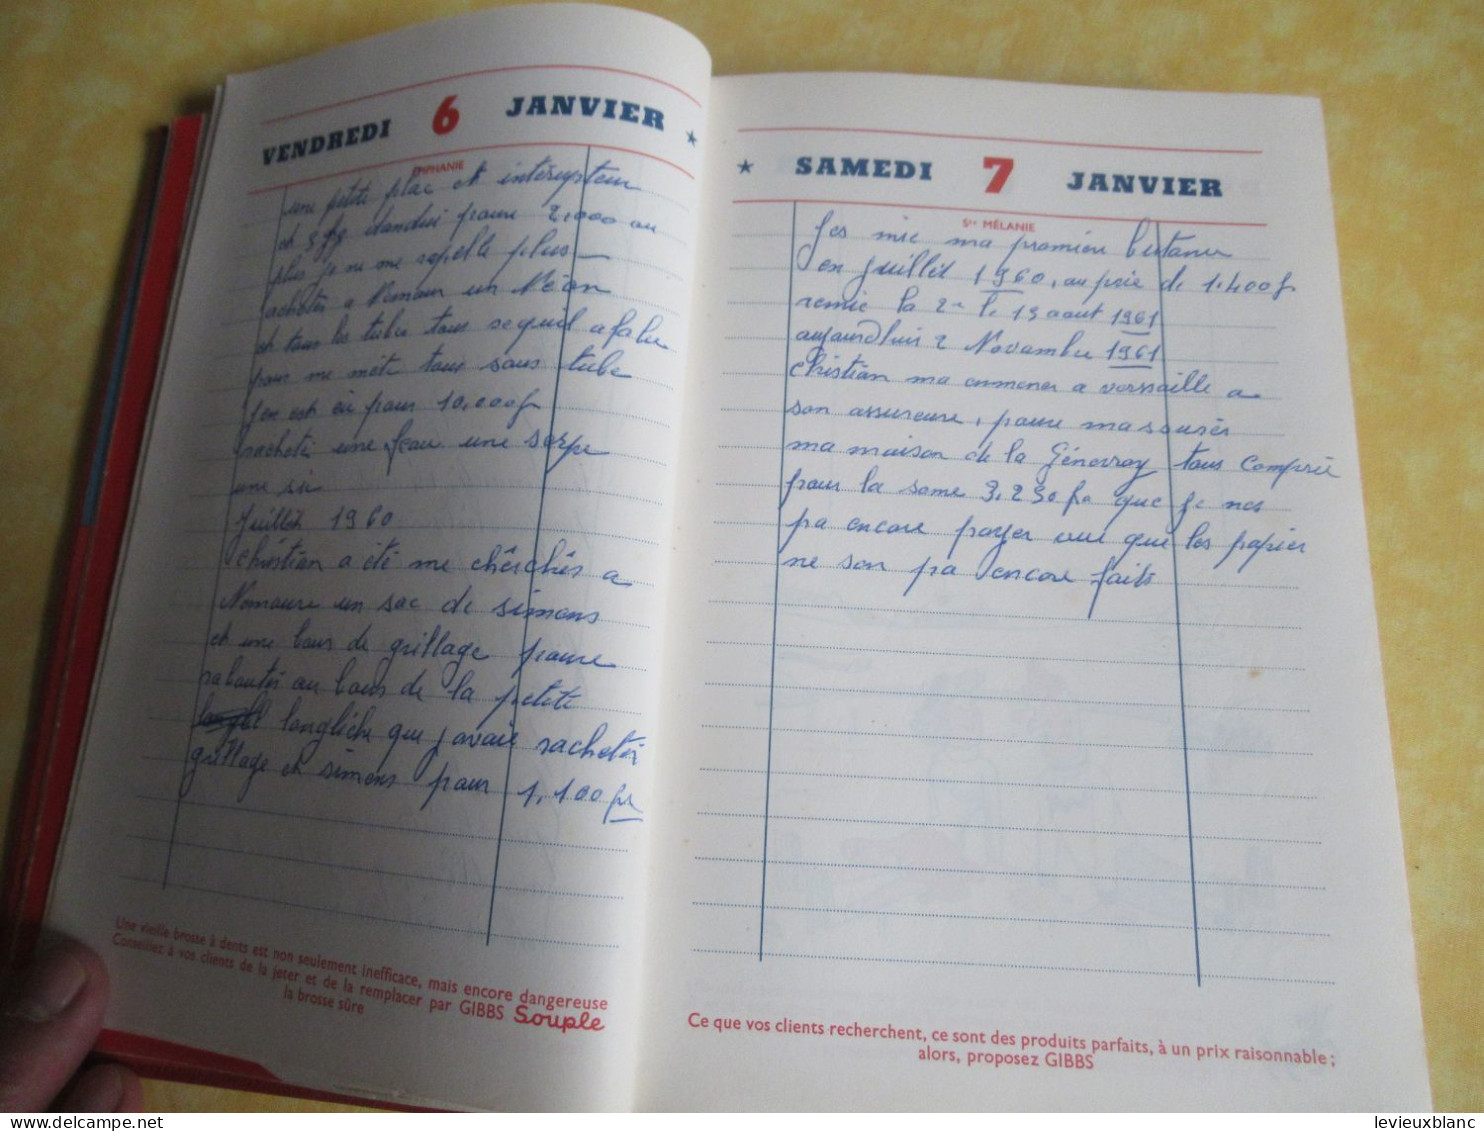 VENDREDI 6 JANVIER
EPIPHANIE
une petite plac et interupteur
et dandui pour 2,000 ou
plus je ne me rapelle plus
acheter a Nemour un Néon
et tous les tube tous se quil a falu
pour me mètr tous sans tube
jen est eu pour 10,000f
racheté une une serpe
une si
Juillet 1960
christian a été me chêrchés a
Nomoure un sac de simons
et une bour de grillage poure
raboutés au bous de la petite
longliche que javair rachetér
grillage et simons pour 1,100 fr
Une vieille brosse à dents est non seulement inefficace, mais encore dangereuse
Conseillez à vos clients de la jeter et de la remplacer par GIBBS Souple
la brosse sûre
SAMEDI 7 JANVIER
Ste MÉLANIE
Jes mie ma premièr butaner
en juillèt 1960, au prie de 1.400f
remie la 2me l. 13 aout 1961
aujourdhuir 2 Novambre 1961
christian ma emmener a versaille a
son assureure, poure masurér
ma maison de la Génevray tous comprie
pour la some 3,230 fr que je nes
pa encore payer vue que les papier
ne son pa encore faits
Ce que vos clients recherchent, ce sont des produits parfaits, à un prix raisonnable ;
alors, proposez GIBBS
levieuxblanc